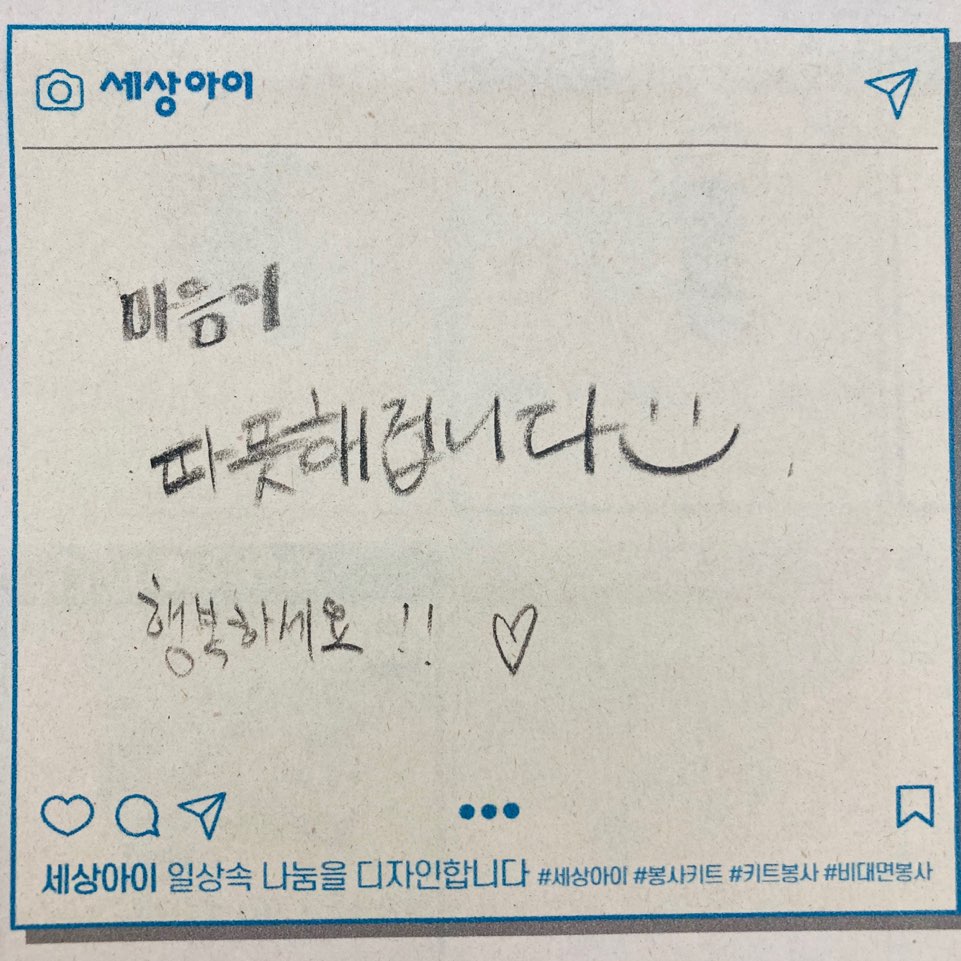 세상아이
마음이
따뜻해집니다
행복하세요!! ♡
세상아이 일상속 나눔을 디자인합니다 #세상아이 #봉사키트 #키트봉사 #비대면봉사